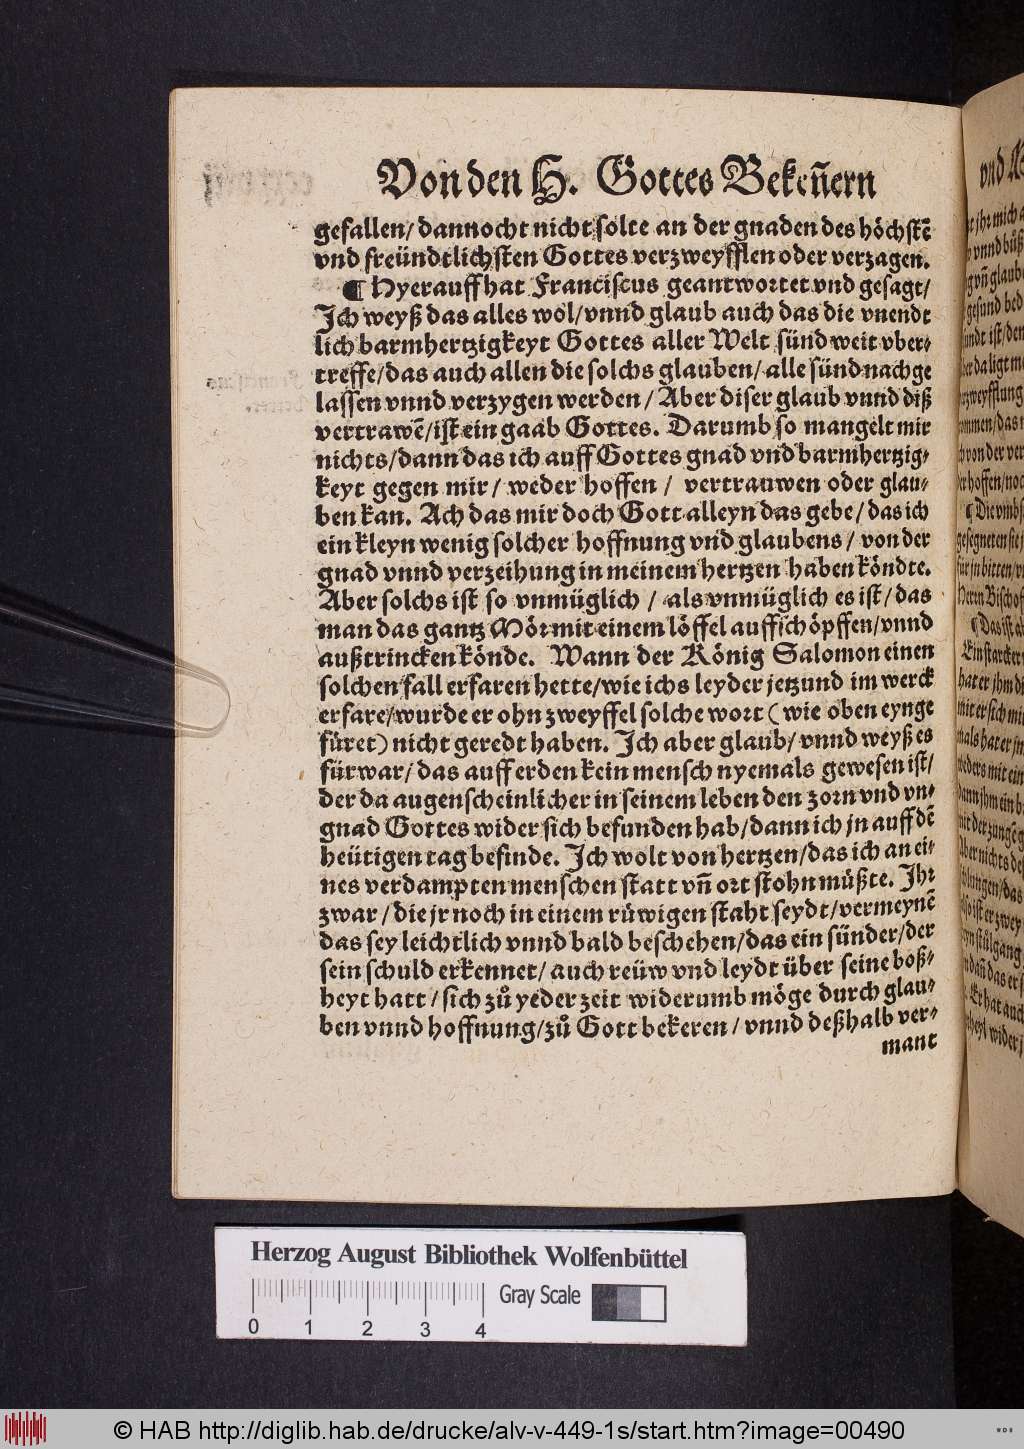 Von den H. Gottes Bekeñern
gefallen/ dannocht nicht solte an der gnaden des höchstẽ
vnd freündtlichsten Gottes verzweyfflen oder verzagen.
¶ Hyerauff hat Franciscus geantwortet vnd gesagt/
Ich weyß das alles wol/ vnnd glaub auch das die vnendt
lich barmhertzigkeyt Gottes aller Welt sünd weit vber-
treffe/ das auch allen die solchs glauben/ alle sünd nachge
lassen vnnd verzygen werden/ Aber diser glaub vnnd diß
vertrawẽ/ ist ein gaab Gottes. Darumb so mangelt mir
nichts/ dann das ich auff Gottes gnad vnd barmhertzig-
keyt gegen mir/ weder hoffen/ vertrauwen oder glau-
ben kan. Ach das mir doch Gott alleyn das gebe/ das ich
ein kleyn wenig solcher hoffnung vnd glaubens/ von der
gnad vnnd verzeihung in meinem hertzen haben köndte.
Aber solchs ist so vnmüglich/ als vnmüglich es ist/ das
man das gantz Mör mit einem löffel auffschöpffen/ vnnd
außtrincken könde. Wann der König Salomon einen
solchen fall erfaren hette/ wie ichs leyder jetzund im werck
erfare/ wurde er ohn zweyffel solche wort (wie oben eynge
füret) nicht geredt haben. Ich aber glaub/ vnnd weyß es
fürwar/ das auff erden kein mensch nyemals gewesen ist/
der da augenscheinlicher in seinem leben den zorn vnd vn-
gnad Gottes wider sich befunden hab/ dann ich jn auff dẽ
heütigen tag befinde. Ich wolt von hertzen/ das ich an ei-
nes verdampten menschen statt vñ ort stohn müßte. Ihr
zwar/ die jr noch in einem rüwigen staht seydt/ vermeynẽ
das sey leichtlich vnnd bald beschehen/ das ein sünder/ der
sein schuld erkennet/ auch reüw vnd leydt über seine boß-
heyt hatt/ sich zů yeder zeit widerumb möge durch glau-
ben vnnd hoffnung/ zů Gott bekeren/ vnnd deßhalb ver-
mant
Herzog August Bibliothek Wolfenbüttel
0 1 2 3 4
Gray Scale
© HAB http://diglib.hab.de/drucke/alv-v-449-1s/start.htm?image=00490